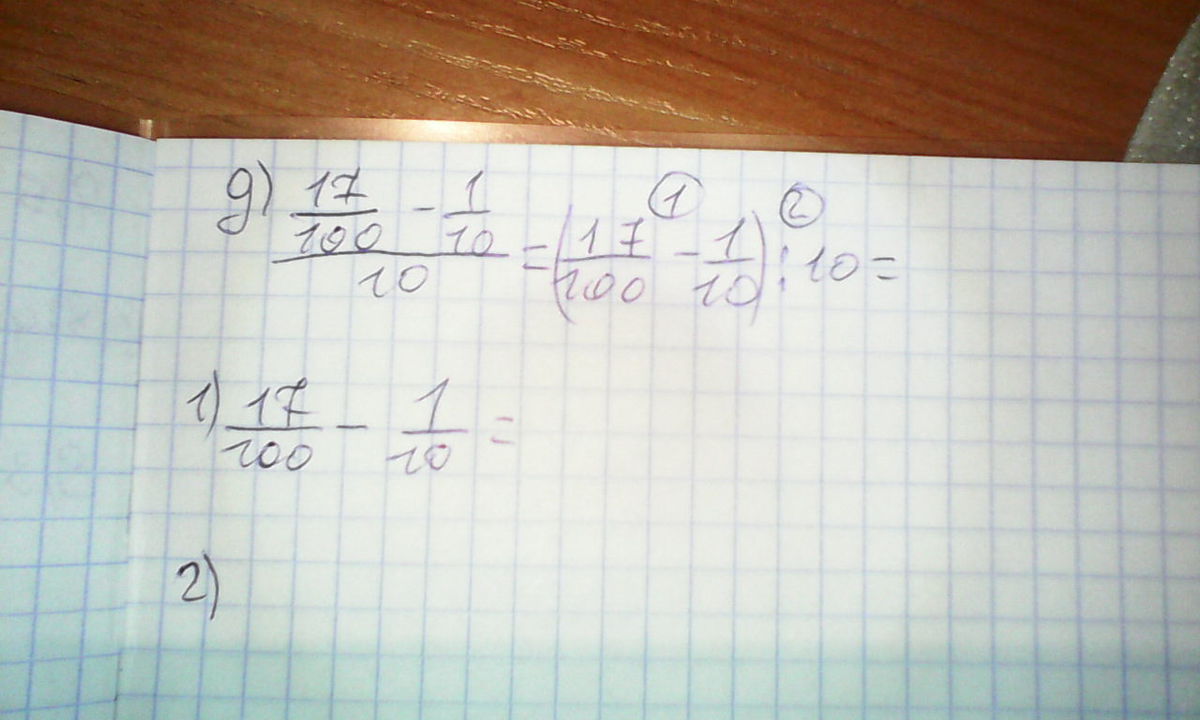 g) (17/100 - 1/10)/10 = (17/100 - 1/10) : 10 = ① ②
1) 17/100 - 1/10 =
2)